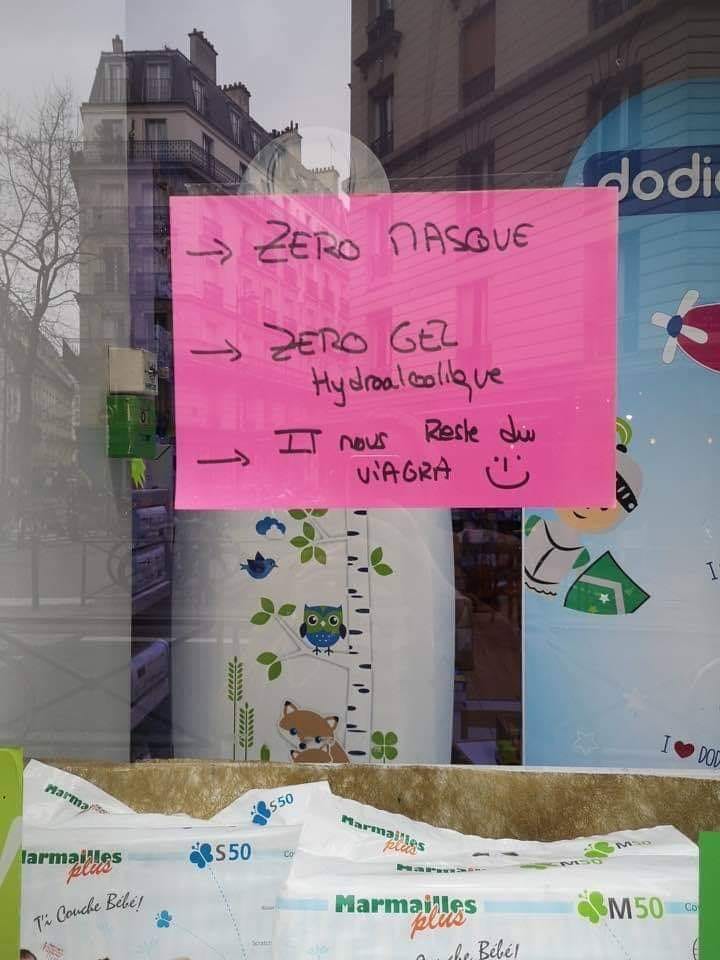 dodi
→ ZERO MASQUE
→ ZERO GEL
Hydroalcoolique
→ Il nous Reste du
VIAGRA
I
I ❤ DOD
Marma
S50
Marmailles
plus
M50
larmailles
plus
S50
Co
T'i Couche Bébé!
Marmailles
plus
M50
Co
che Bébé!